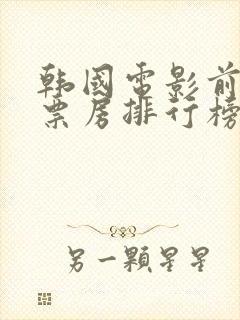 韩國電影前
票房排行榜
另一顆星星